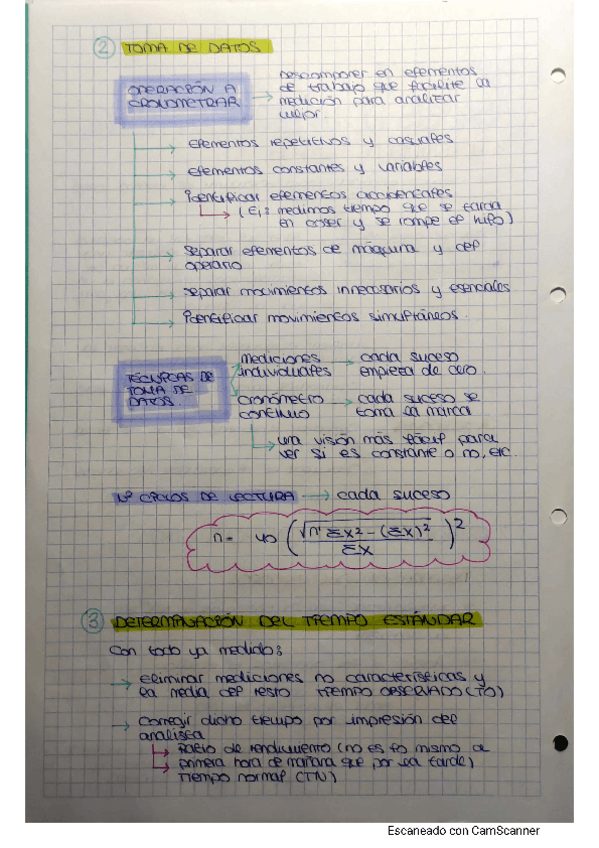 ② TOMA DE DATOS
OPERACIÓN A
CRONOMETRAR
→ Descomponer en elementos
de trabajo que facilite la
medición para analizar
mejor.
→ elementos repetitivos y casuales
→ elementos constantes y variables
→ Identificar elementos accidentales
↳ (Ej: medimos tiempo que se tarda
en coser y se rompe el hilo)
→ separar elementos de máquina y del
operario
→ separar movimientos innecesarios y esenciales
→ Identificar movimientos simultáneos.
TÉCNICAS DE
TOMA DE
DATOS.
mediciones
individuales
→ cada suceso
empieza de cero.
cronómetro
continuo
→ cada suceso se
toma la marca
↳ una visión más fácil para
ver si es constante o no, etc.
Nº CICLOS DE LECTURA → cada suceso
n = 40 (√n' Σx2 - (Σx)2 / Σx)2
③ DETERMINACIÓN DEL TIEMPO ESTÁNDAR
Con todo ya medido:
→ Eliminar mediciones no características y
la media del resto TIEMPO OBSERVADO (TO)
→ Corregir dicho tiempo por impresión del
analista
↳ Ratio de rendimiento (no es lo mismo a
primera hora de mañana que por la tarde)
Tiempo normal (TN)
Escaneado con CamScanner